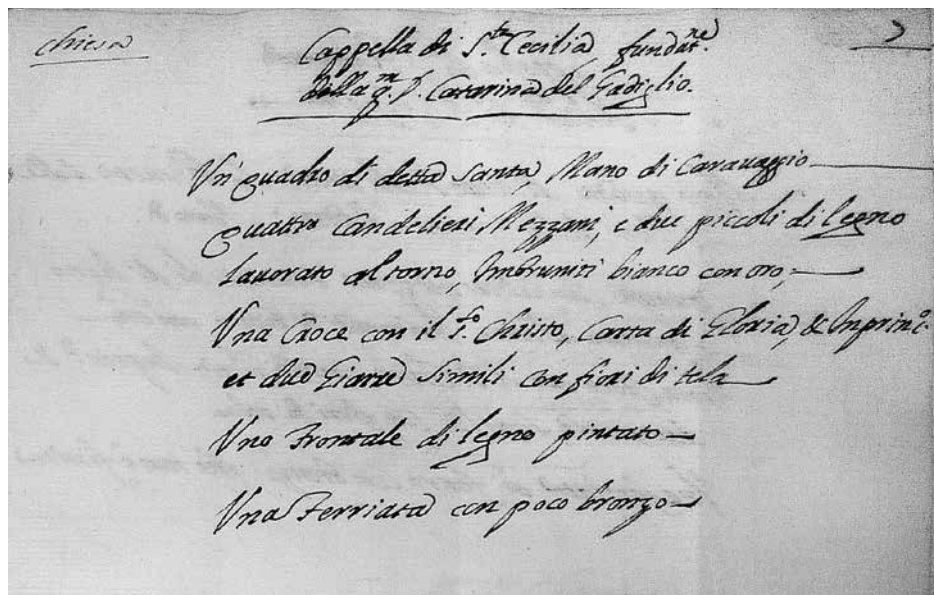 Chiesa
Cappella di S.ta Cecilia fundat.ne
della q.m S. Catarina del Gadiglio.
Un quadro di detta Santa, Mano di Caravaggio
quattro Candelieri Mezzani, e due piccoli di legno
lavorato al torno, Imbruniti bianco con oro,
Una Croce con il S.to Christo, Carta di Gloria, & Inprin.o
et due Giarre Simili con fiori di tela
Uno Frontale di legno pintato
Una Ferriata con poco bronzo